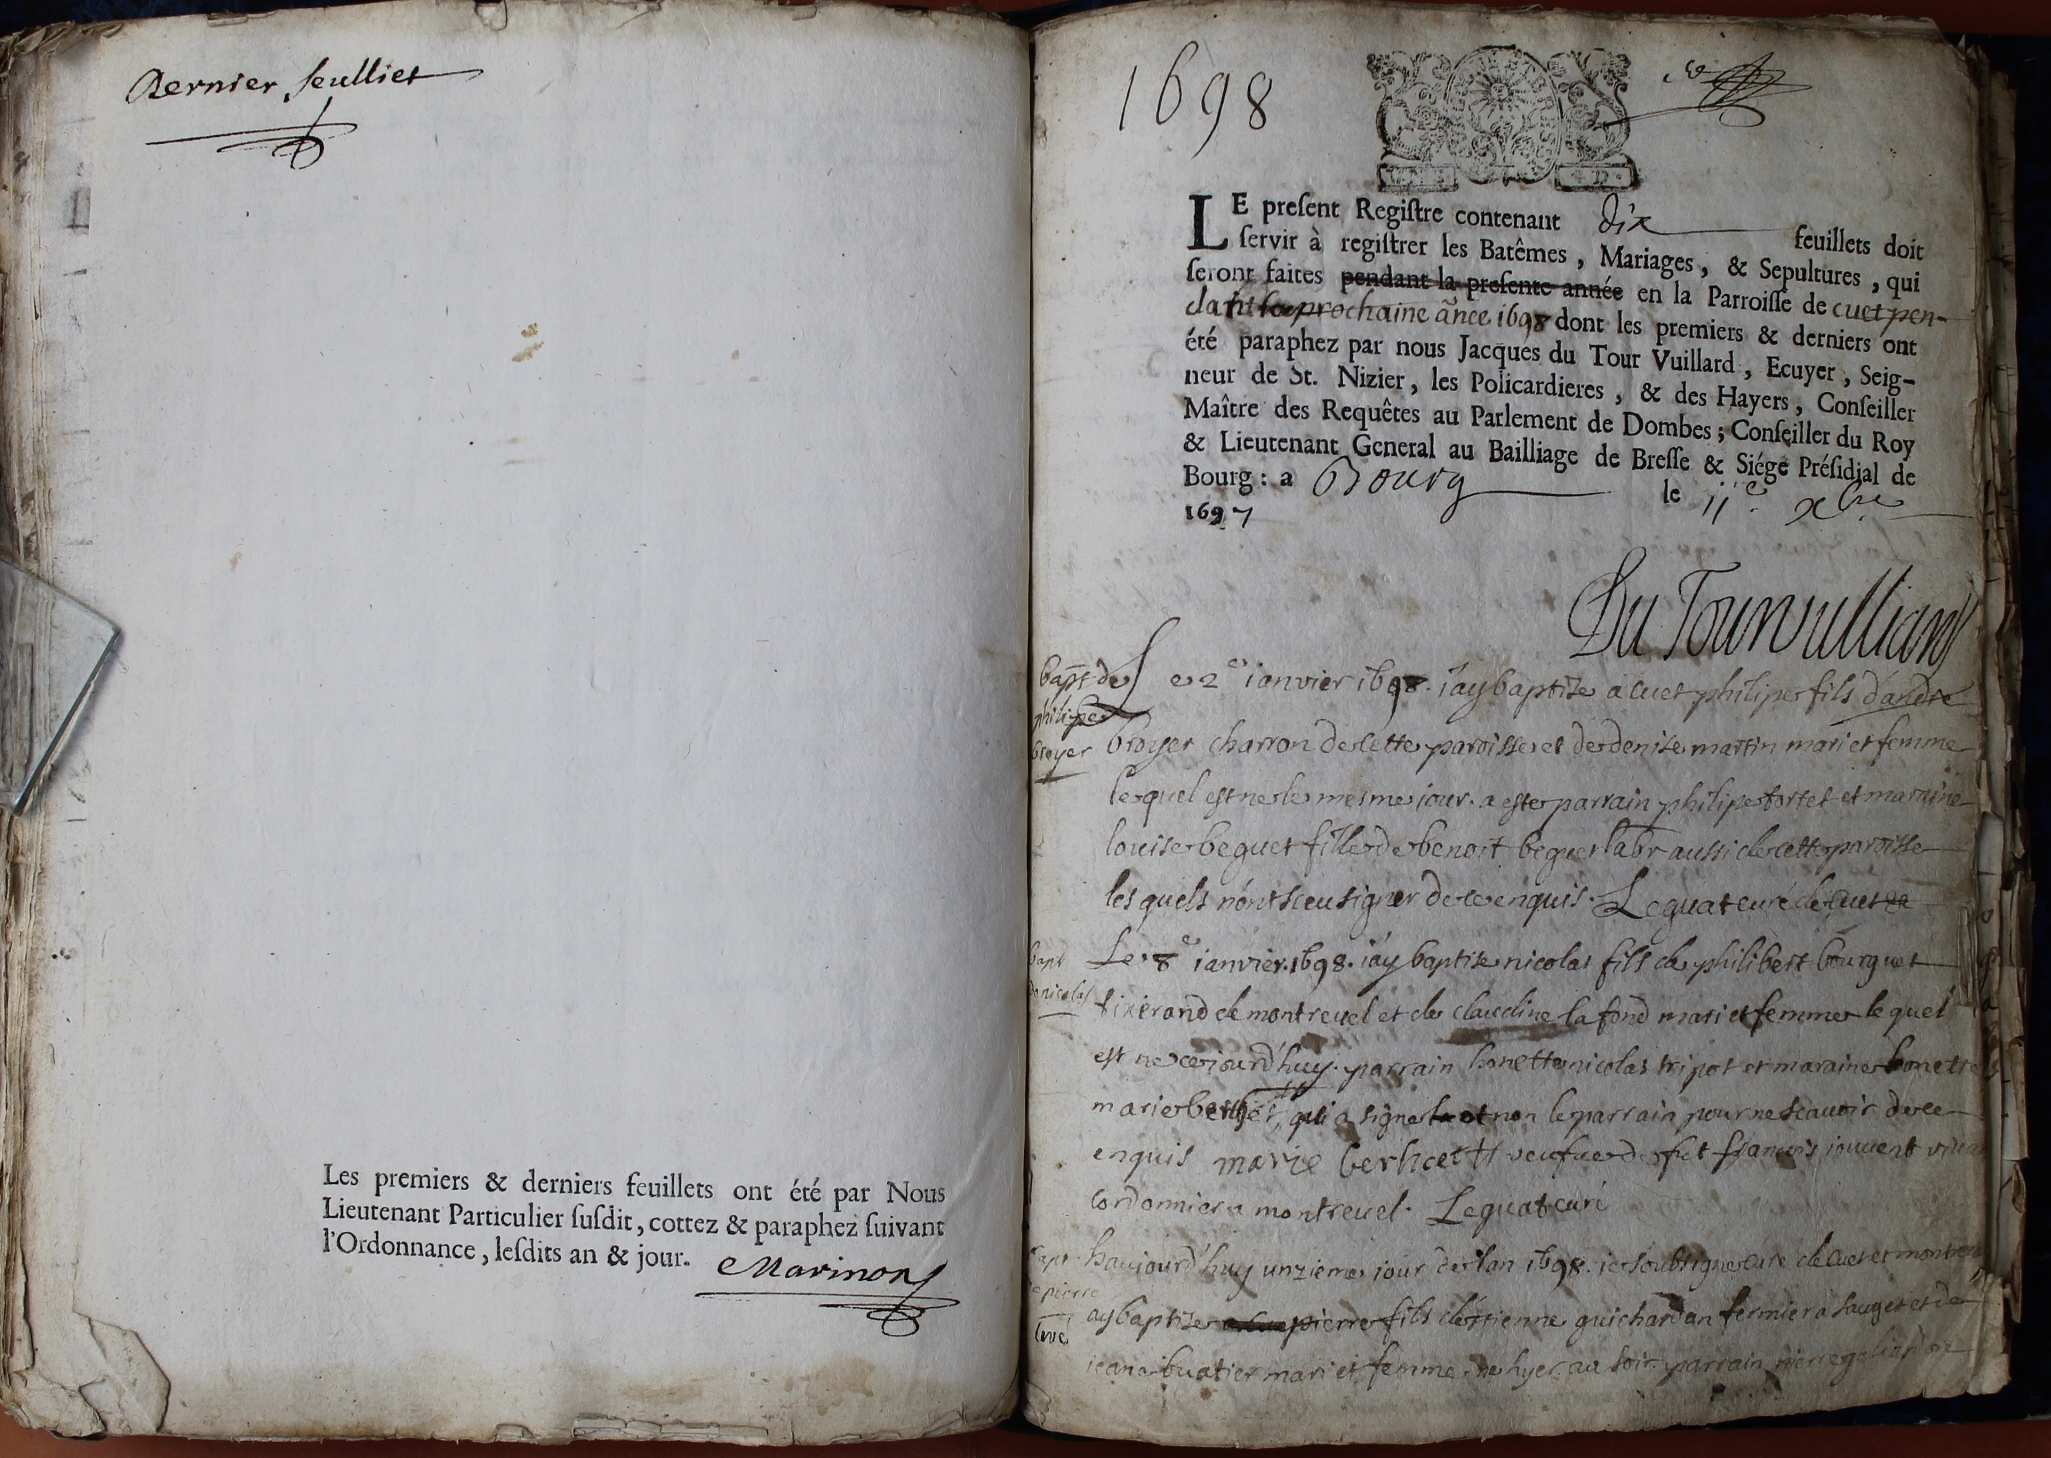 Dernier feulliet
Les premiers & derniers feuillets ont été par Nous
Lieutenant Particulier ſuſdit, cottez & paraphez ſuivant
l'Ordonnance, leſdits an & jour. Marinon
1698
LE preſent Regiſtre contenant dix feuillets doit
ſervir à regiſtrer les Batêmes, Mariages, & Sepultures, qui
ſeront faites pendant la preſente année en la Parroiſſe de cuet pen-
dant la prochaine año 1698 dont les premiers & derniers ont
été paraphez par nous Jacques du Tour Vuillard, Ecuyer, Seig-
neur de St. Nizier, les Policardieres, & des Hayers, Conſeiller
Maître des Requêtes au Parlement de Dombes; Conſeiller du Roy
& Lieutenant General au Bailliage de Breſſe & Siége Préſidial de
Bourg: a Bourg le 11e xbre
1697
Du Tourvulliard
bapt de
philipe
broyer
Le 2e ianvier 1698. i'ay baptise a cuet philipe fils d'andre
broyer charron de cette paroisse et de denise martin mari et femme
lequel est ne le mesme iour. a este parrain philipe et maraine
louise beguet fille de benoit beguet labr aussi de cette paroisse
les quels n'ont sceu signer de ce enquis. Leguat curé de cuet
bapt
de nicolas
Le 8e ianvier. 1698. i'ay baptise nicolas fils de philibert bourguet
tixerand de montrevel et de claudine la fond mari et femme le quel
est ne ce iourd'huy. parrain honette nicolas tripot et maraine honette
marie berthet, qui a signe et non le parrain pour ne scavoir de ce
enquis marie berhcet veufve de feu francois jouvent
cordonnier a montrevel. Leguat curé
bapt
pierre
haujourd'huy unzieme jour de l'an 1698. ie soubsigne curé de cuet et montrevel
ay baptise pierre fils d'estienne guichardan fermier a sauget et de
ieane buatier mari et femme ne hyer au soir. parrain pierre